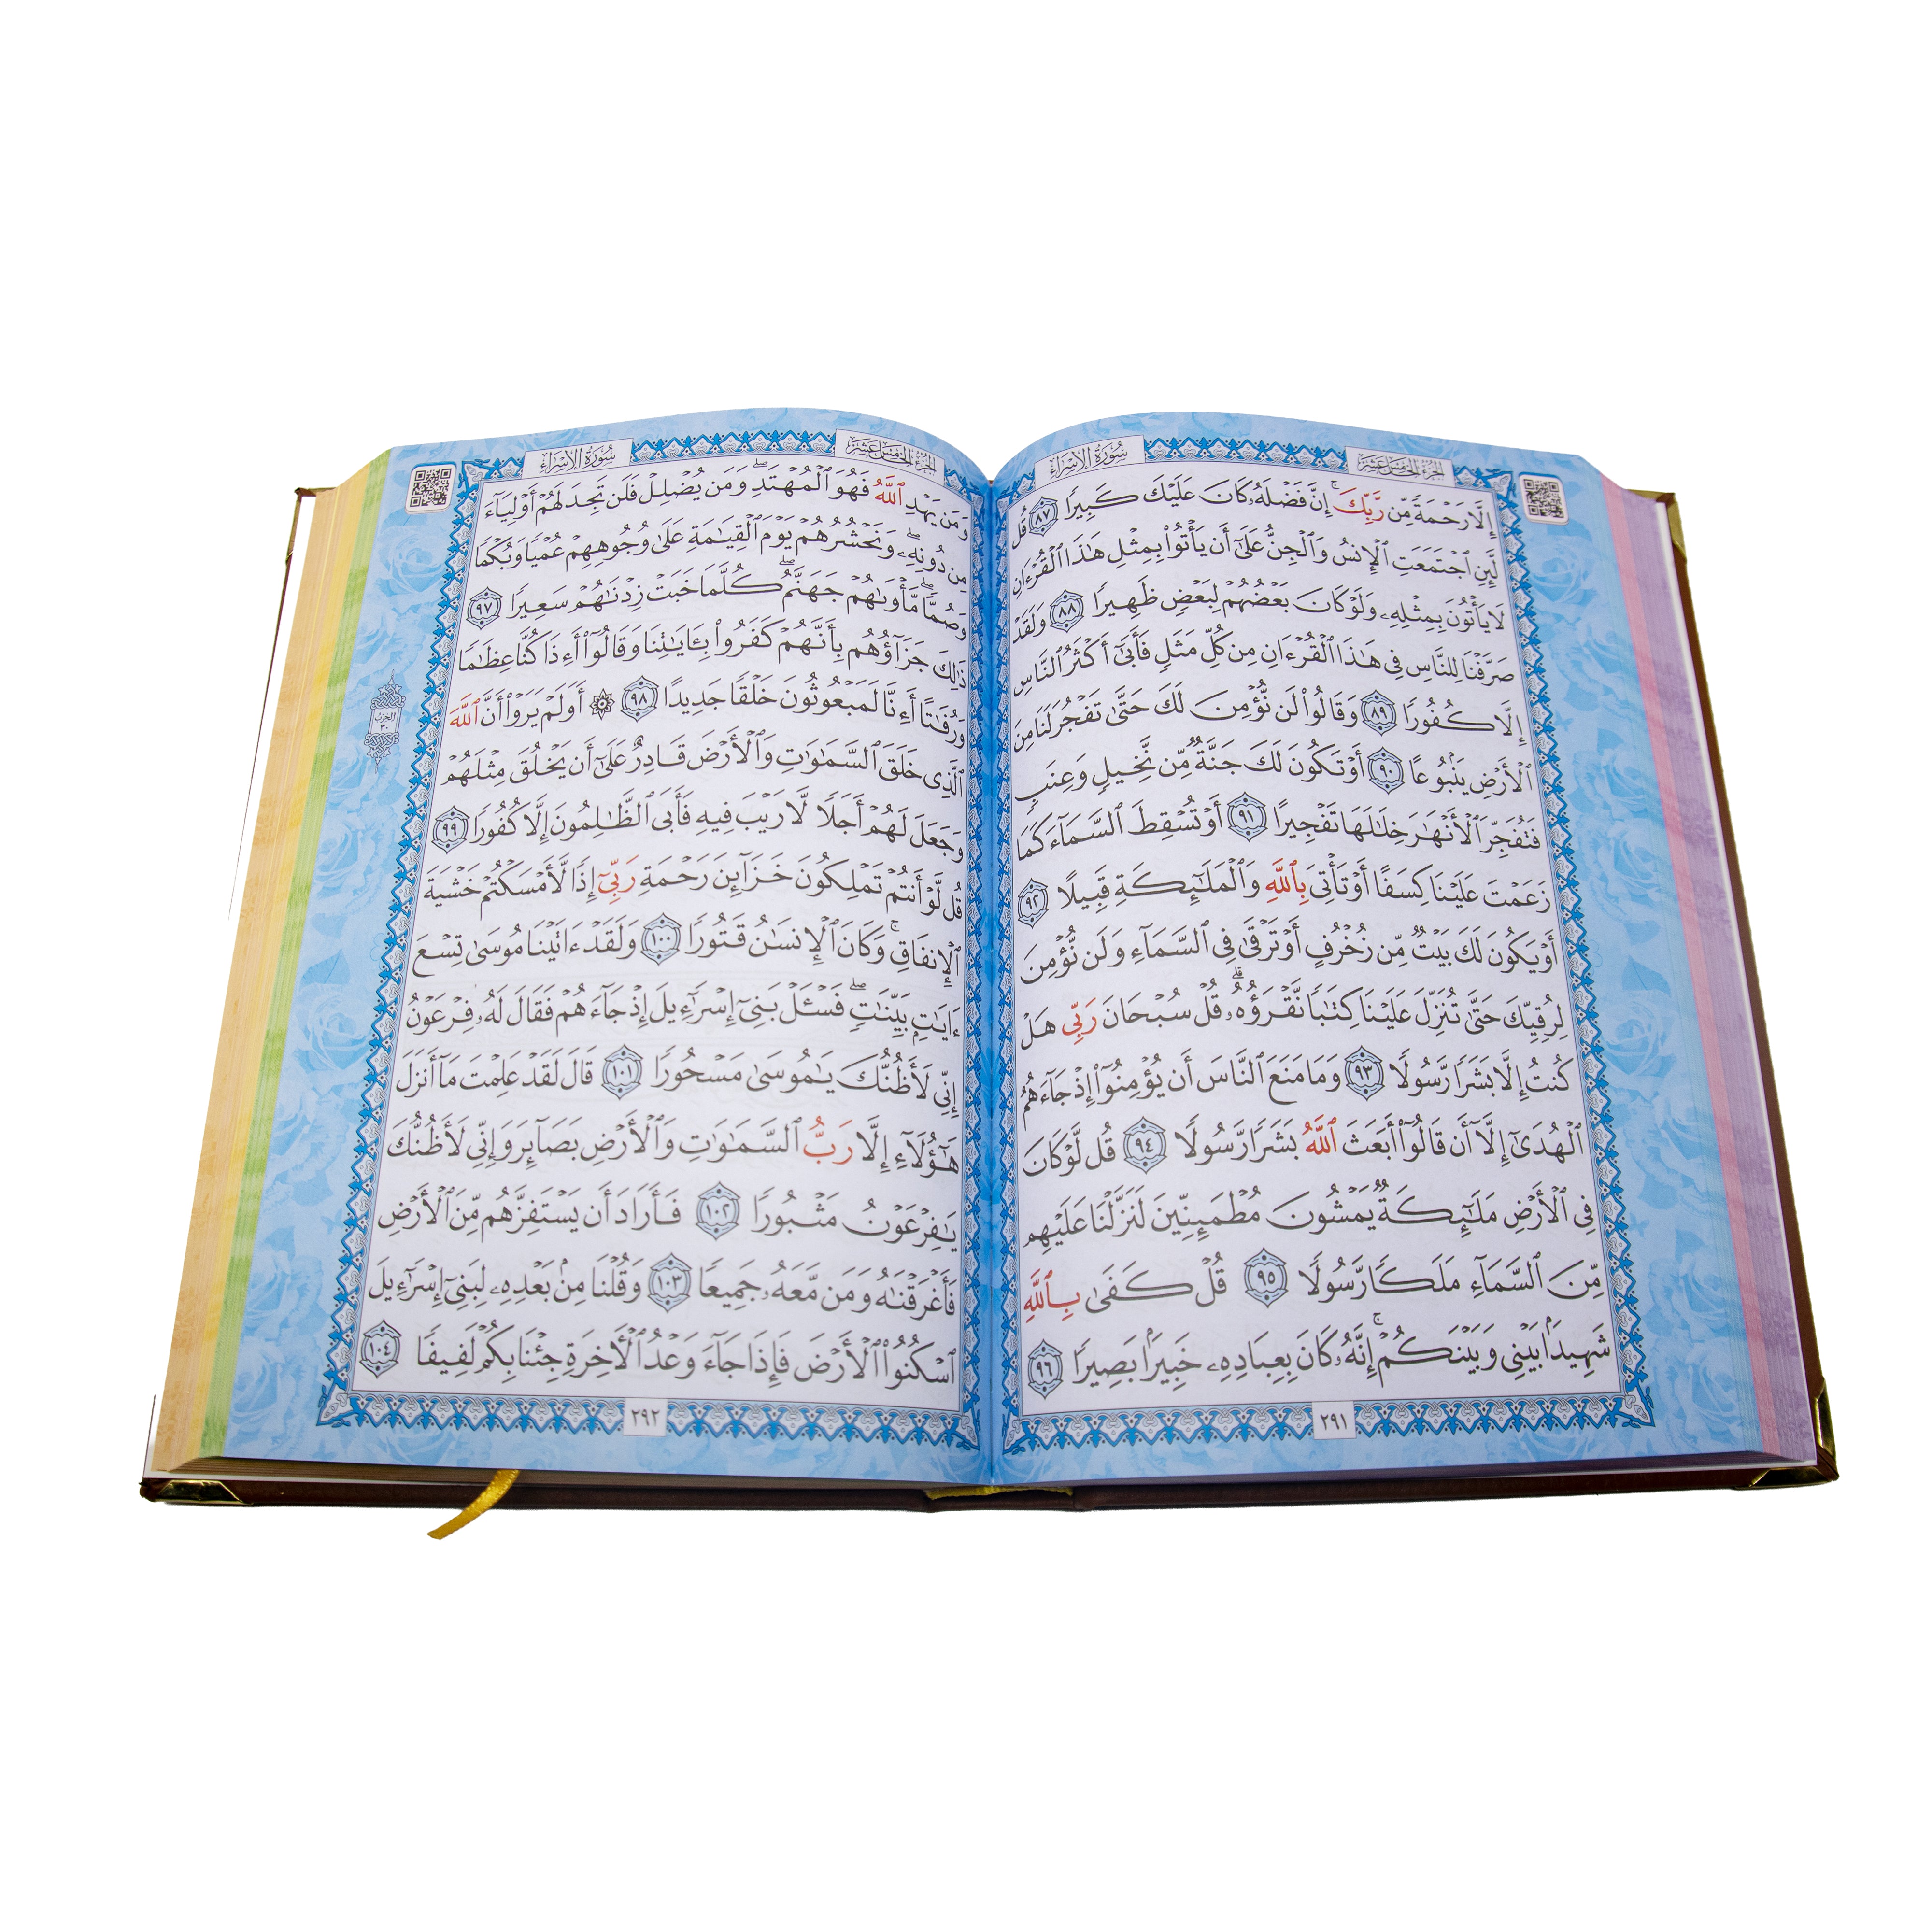 سُورَةُ الإِسْرَاءِ
الجُزْءُ الخَامِسَ عَشَرَ
إِلَّا رَحْمَةً مِّن رَّبِّكَ ۚ إِنَّ فَضْلَهُۥ كَانَ عَلَيْكَ كَبِيرًا ٨٧ قُل
لَّئِنِ ٱجْتَمَعَتِ ٱلْإِنسُ وَٱلْجِنُّ عَلَىٰٓ أَن يَأْتُوا۟ بِمِثْلِ هَٰذَا ٱلْقُرْءَانِ
لَا يَأْتُونَ بِمِثْلِهِۦ وَلَوْ كَانَ بَعْضُهُمْ لِبَعْضٍ ظَهِيرًا ٨٨ وَلَقَدْ
صَرَّفْنَا لِلنَّاسِ فِى هَٰذَا ٱلْقُرْءَانِ مِن كُلِّ مَثَلٍ فَأَبَىٰٓ أَكْثَرُ ٱلنَّاسِ
إِلَّا كُفُورًا ٨٩ وَقَالُوا۟ لَن نُّؤْمِنَ لَكَ حَتَّىٰ تَفْجُرَ لَنَا مِنَ
ٱلْأَرْضِ يَنۢبُوعًا ٩٠ أَوْ تَكُونَ لَكَ جَنَّةٌ مِّن نَّخِيلٍ وَعِنَبٍ
فَتُفَجِّرَ ٱلْأَنْهَٰرَ خِلَٰلَهَا تَفْجِيرًا ٩١ أَوْ تُسْقِطَ ٱلسَّمَآءَ كَمَا
زَعَمْتَ عَلَيْنَا كِسَفًا أَوْ تَأْتِىَ بِٱللَّهِ وَٱلْمَلَٰٓئِكَةِ قَبِيلًا ٩٢
أَوْ يَكُونَ لَكَ بَيْتٌ مِّن زُخْرُفٍ أَوْ تَرْقَىٰ فِى ٱلسَّمَآءِ وَلَن نُّؤْمِنَ
لِرُقِيِّكَ حَتَّىٰ تُنَزِّلَ عَلَيْنَا كِتَٰبًا نَّقْرَؤُهُۥ ۗ قُلْ سُبْحَانَ رَبِّى هَلْ
كُنتُ إِلَّا بَشَرًا رَّسُولًا ٩٣ وَمَا مَنَعَ ٱلنَّاسَ أَن يُؤْمِنُوٓا۟ إِذْ جَآءَهُمُ
ٱلْهُدَىٰٓ إِلَّآ أَن قَالُوٓا۟ أَبَعَثَ ٱللَّهُ بَشَرًا رَّسُولًا ٩٤ قُل لَّوْ كَانَ
فِى ٱلْأَرْضِ مَلَٰٓئِكَةٌ يَمْشُونَ مُطْمَئِنِّينَ لَنَزَّلْنَا عَلَيْهِم
مِّنَ ٱلسَّمَآءِ مَلَكًا رَّسُولًا ٩٥ قُلْ كَفَىٰ بِٱللَّهِ
شَهِيدًۢا بَيْنِى وَبَيْنَكُمْ ۚ إِنَّهُۥ كَانَ بِعِبَادِهِۦ خَبِيرًۢا بَصِيرًا ٩٦
٢٩١
سُورَةُ الإِسْرَاءِ
الجُزْءُ الخَامِسَ عَشَرَ
وَمَن يَهْدِ ٱللَّهُ فَهُوَ ٱلْمُهْتَدِ ۖ وَمَن يُضْلِلْ فَلَن تَجِدَ لَهُمْ أَوْلِيَآءَ
مِن دُونِهِۦ ۖ وَنَحْشُرُهُمْ يَوْمَ ٱلْقِيَٰمَةِ عَلَىٰ وُجُوهِهِمْ عُمْيًا وَبُكْمًا
وَصُمًّا ۖ مَّأْوَىٰهُمْ جَهَنَّمُ ۖ كُلَّمَا خَبَتْ زِدْنَٰهُمْ سَعِيرًا ٩٧
ذَٰلِكَ جَزَآؤُهُم بِأَنَّهُمْ كَفَرُوا۟ بِـَٔايَٰتِنَا وَقَالُوٓا۟ أَءِذَا كُنَّا عِظَٰمًا
وَرُفَٰتًا أَءِنَّا لَمَبْعُوثُونَ خَلْقًا جَدِيدًا ٩٨ ۞ أَوَلَمْ يَرَوْا۟ أَنَّ ٱللَّهَ
ٱلَّذِى خَلَقَ ٱلسَّمَٰوَٰتِ وَٱلْأَرْضَ قَادِرٌ عَلَىٰٓ أَن يَخْلُقَ مِثْلَهُمْ
وَجَعَلَ لَهُمْ أَجَلًا لَّا رَيْبَ فِيهِ فَأَبَى ٱلظَّٰلِمُونَ إِلَّا كُفُورًا ٩٩
قُل لَّوْ أَنتُمْ تَمْلِكُونَ خَزَآئِنَ رَحْمَةِ رَبِّىٓ إِذًا لَّأَمْسَكْتُمْ خَشْيَةَ
ٱلْإِنفَاقِ ۚ وَكَانَ ٱلْإِنسَٰنُ قَتُورًا ١٠٠ وَلَقَدْ ءَاتَيْنَا مُوسَىٰ تِسْعَ
ءَايَٰتٍۭ بَيِّنَٰتٍ ۖ فَسْـَٔلْ بَنِىٓ إِسْرَٰٓءِيلَ إِذْ جَآءَهُمْ فَقَالَ لَهُۥ فِرْعَوْنُ
إِنِّى لَأَظُنُّكَ يَٰمُوسَىٰ مَسْحُورًا ١٠١ قَالَ لَقَدْ عَلِمْتَ مَآ أَنزَلَ
هَٰٓؤُلَآءِ إِلَّا رَبُّ ٱلسَّمَٰوَٰتِ وَٱلْأَرْضِ بَصَآئِرَ وَإِنِّى لَأَظُنُّكَ
يَٰفِرْعَوْنُ مَثْبُورًا ١٠٢ فَأَرَادَ أَن يَسْتَفِزَّهُم مِّنَ ٱلْأَرْضِ
فَأَغْرَقْنَٰهُ وَمَن مَّعَهُۥ جَمِيعًا ١٠٣ وَقُلْنَا مِنۢ بَعْدِهِۦ لِبَنِىٓ إِسْرَٰٓءِيلَ
ٱسْكُنُوا۟ ٱلْأَرْضَ فَإِذَا جَآءَ وَعْدُ ٱلْءَاخِرَةِ جِئْنَا بِكُمْ لَفِيفًا ١٠٤
الحزب
٣٠
٢٩٢